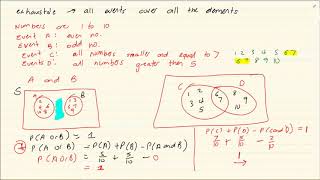 exhaustive → all events cover all the elements
Numbers are 1 to 10
Event A: even no.
Event B: odd no.
Event C: all numbers smaller and equal to 7
Events D: all numbers greater than 5
1 2 3 4 5 6 7
6 7 8 9 10
A and B
S
A
B
C
D
1 2
3 4
5
6
7
8
9
10
P(A or B) = 1
P(A or B) = P(A) + P(B) - P(A and B)
P(A or B) = 5/10 + 5/10 - 0
= 1
P(C) + P(D) - P(C and D) = 1
7/10 + 5/10 - 2/10
1